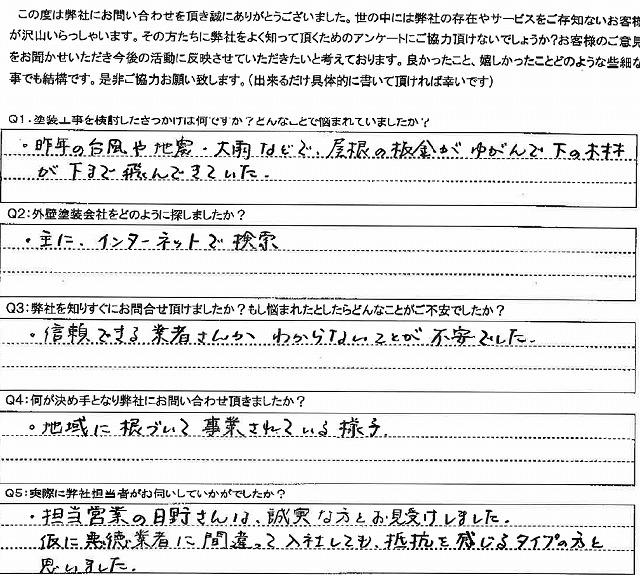 この度は弊社にお問い合わせを頂き誠にありがとうございました。世の中には弊社の存在やサービスをご存知ないお客様
が沢山いらっしゃいます。その方たちに弊社をよく知って頂くためのアンケートにご協力頂けないでしょうか?お客様のご意見
をお聞かせいただき今後の活動に反映させていただきたいと考えております。良かったこと、嬉しかったことどのような些細な
事でも結構です。是非ご協力お願い致します。(出来るだけ具体的に書いて頂ければ幸いです)
Q1:塗装工事を検討したきっかけは何ですか?どんなことで悩まれていましたか?
・昨年の台風や地震・大雨などで、屋根の板金がゆがんで下の木材
が下まで飛んできていた。
Q2:外壁塗装会社をどのように探しましたか?
・主に、インターネットで検索
Q3:弊社を知りすぐにお問合せ頂けましたか?もし悩まれたとしたらどんなことがご不安でしたか?
・信頼できる業者さんか、わからないことが不安でした。
Q4:何が決め手となり弊社にお問い合わせ頂きましたか?
・地域に根づいて事業されている様子。
Q5:実際に弊社担当者がお伺いしていかがでしたか?
・担当営業の日野さんは、誠実な方とお見受けしました。
仮に悪徳業者に間違って入社しても、抵抗を感じるタイプの方と
思いました。